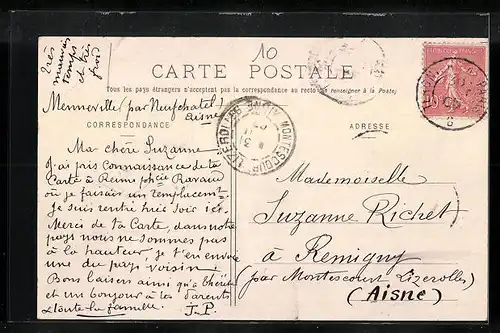 très
mauvais
temps
et très
froid
10
CARTE POSTALE
Tous les pays étrangers n'acceptent pas la correspondance au recto (se renseigner à la Poste)
Menneville (par Neufchatel)
Aisne
CORRESPONDANCE
ADRESSE
MONTESCOURT-LIZEROLLES
AISNE
10
Ma chère Suzanne
J'ai pris connaissance de ta
Carte à Reims phcie Ravaud
où je faisais un remplacement
Je suis rentré hier soir ici.
Merci de ta Carte, dans notre
pays nous ne sommes pas
à la hauteur je t'en envoie
une du pays voisin.
Bons baisers ainsi qu'a
et un bonjour à tes Parents
& toute la famille. J.P.
Mademoiselle
Suzanne Richet
à Remigny
(par Montescourt Lizerolles)
(Aisne)